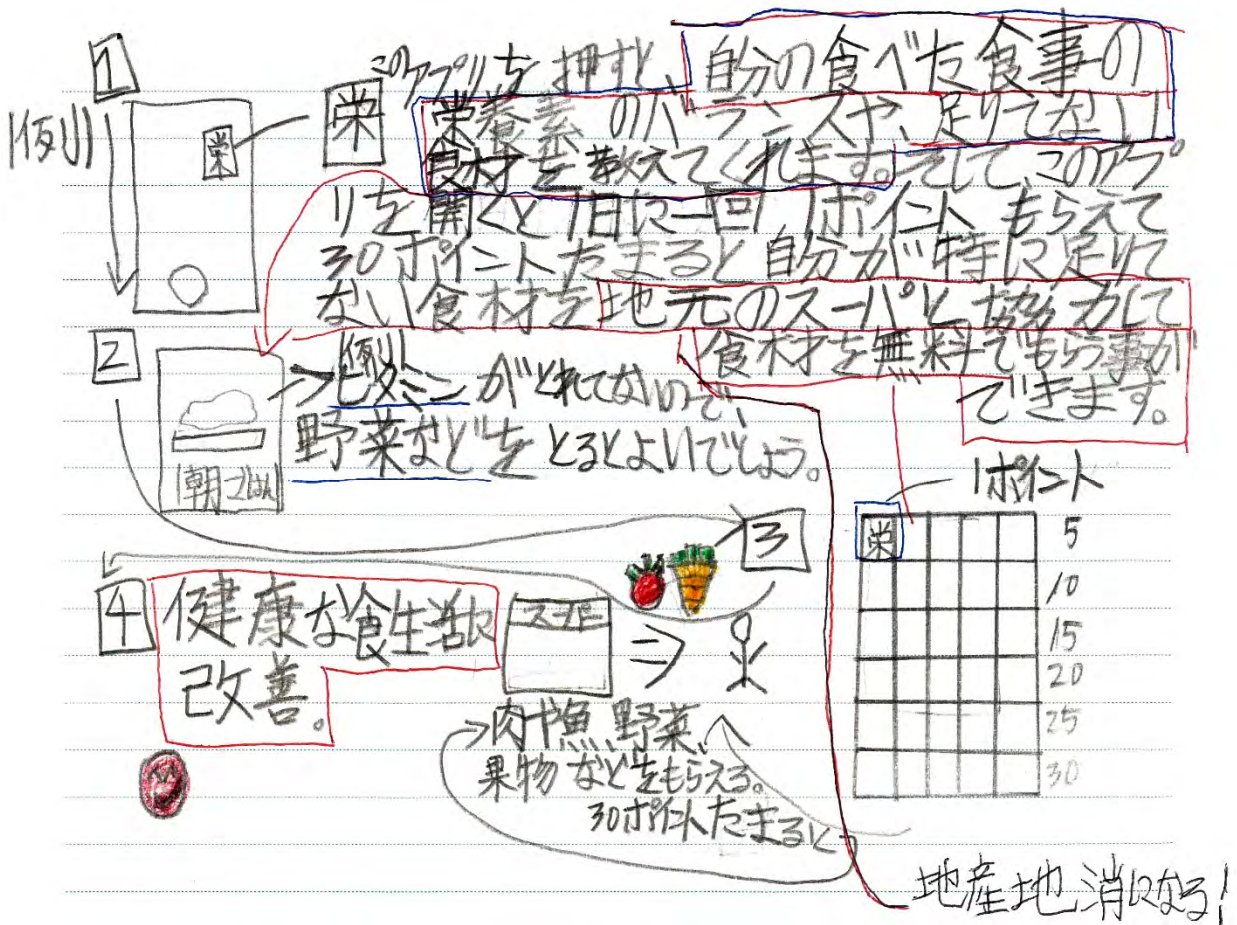 1
例
栄
栄
このアプリを押すと、自分の食べた食事の
栄養素のバランスや、足りてない
食材を教えてくれます。そして、このアプ
リを開くと1日に一回1ポイントもらえて
30ポイントたまると自分が特に足りて
ない食材を地元のスーパーと協力して
食材を無料でもらう事が
できます。
2
朝ごはん
例
ビタミンがとれてないので、
野菜などをとるとよいでしょう。
1ポイント
栄
5
10
15
20
25
30
3
スーパー
肉や魚、野菜、
果物などをもらえる。
30ポイントたまると
4
健康な食生活に
改善。
地産地消になる!